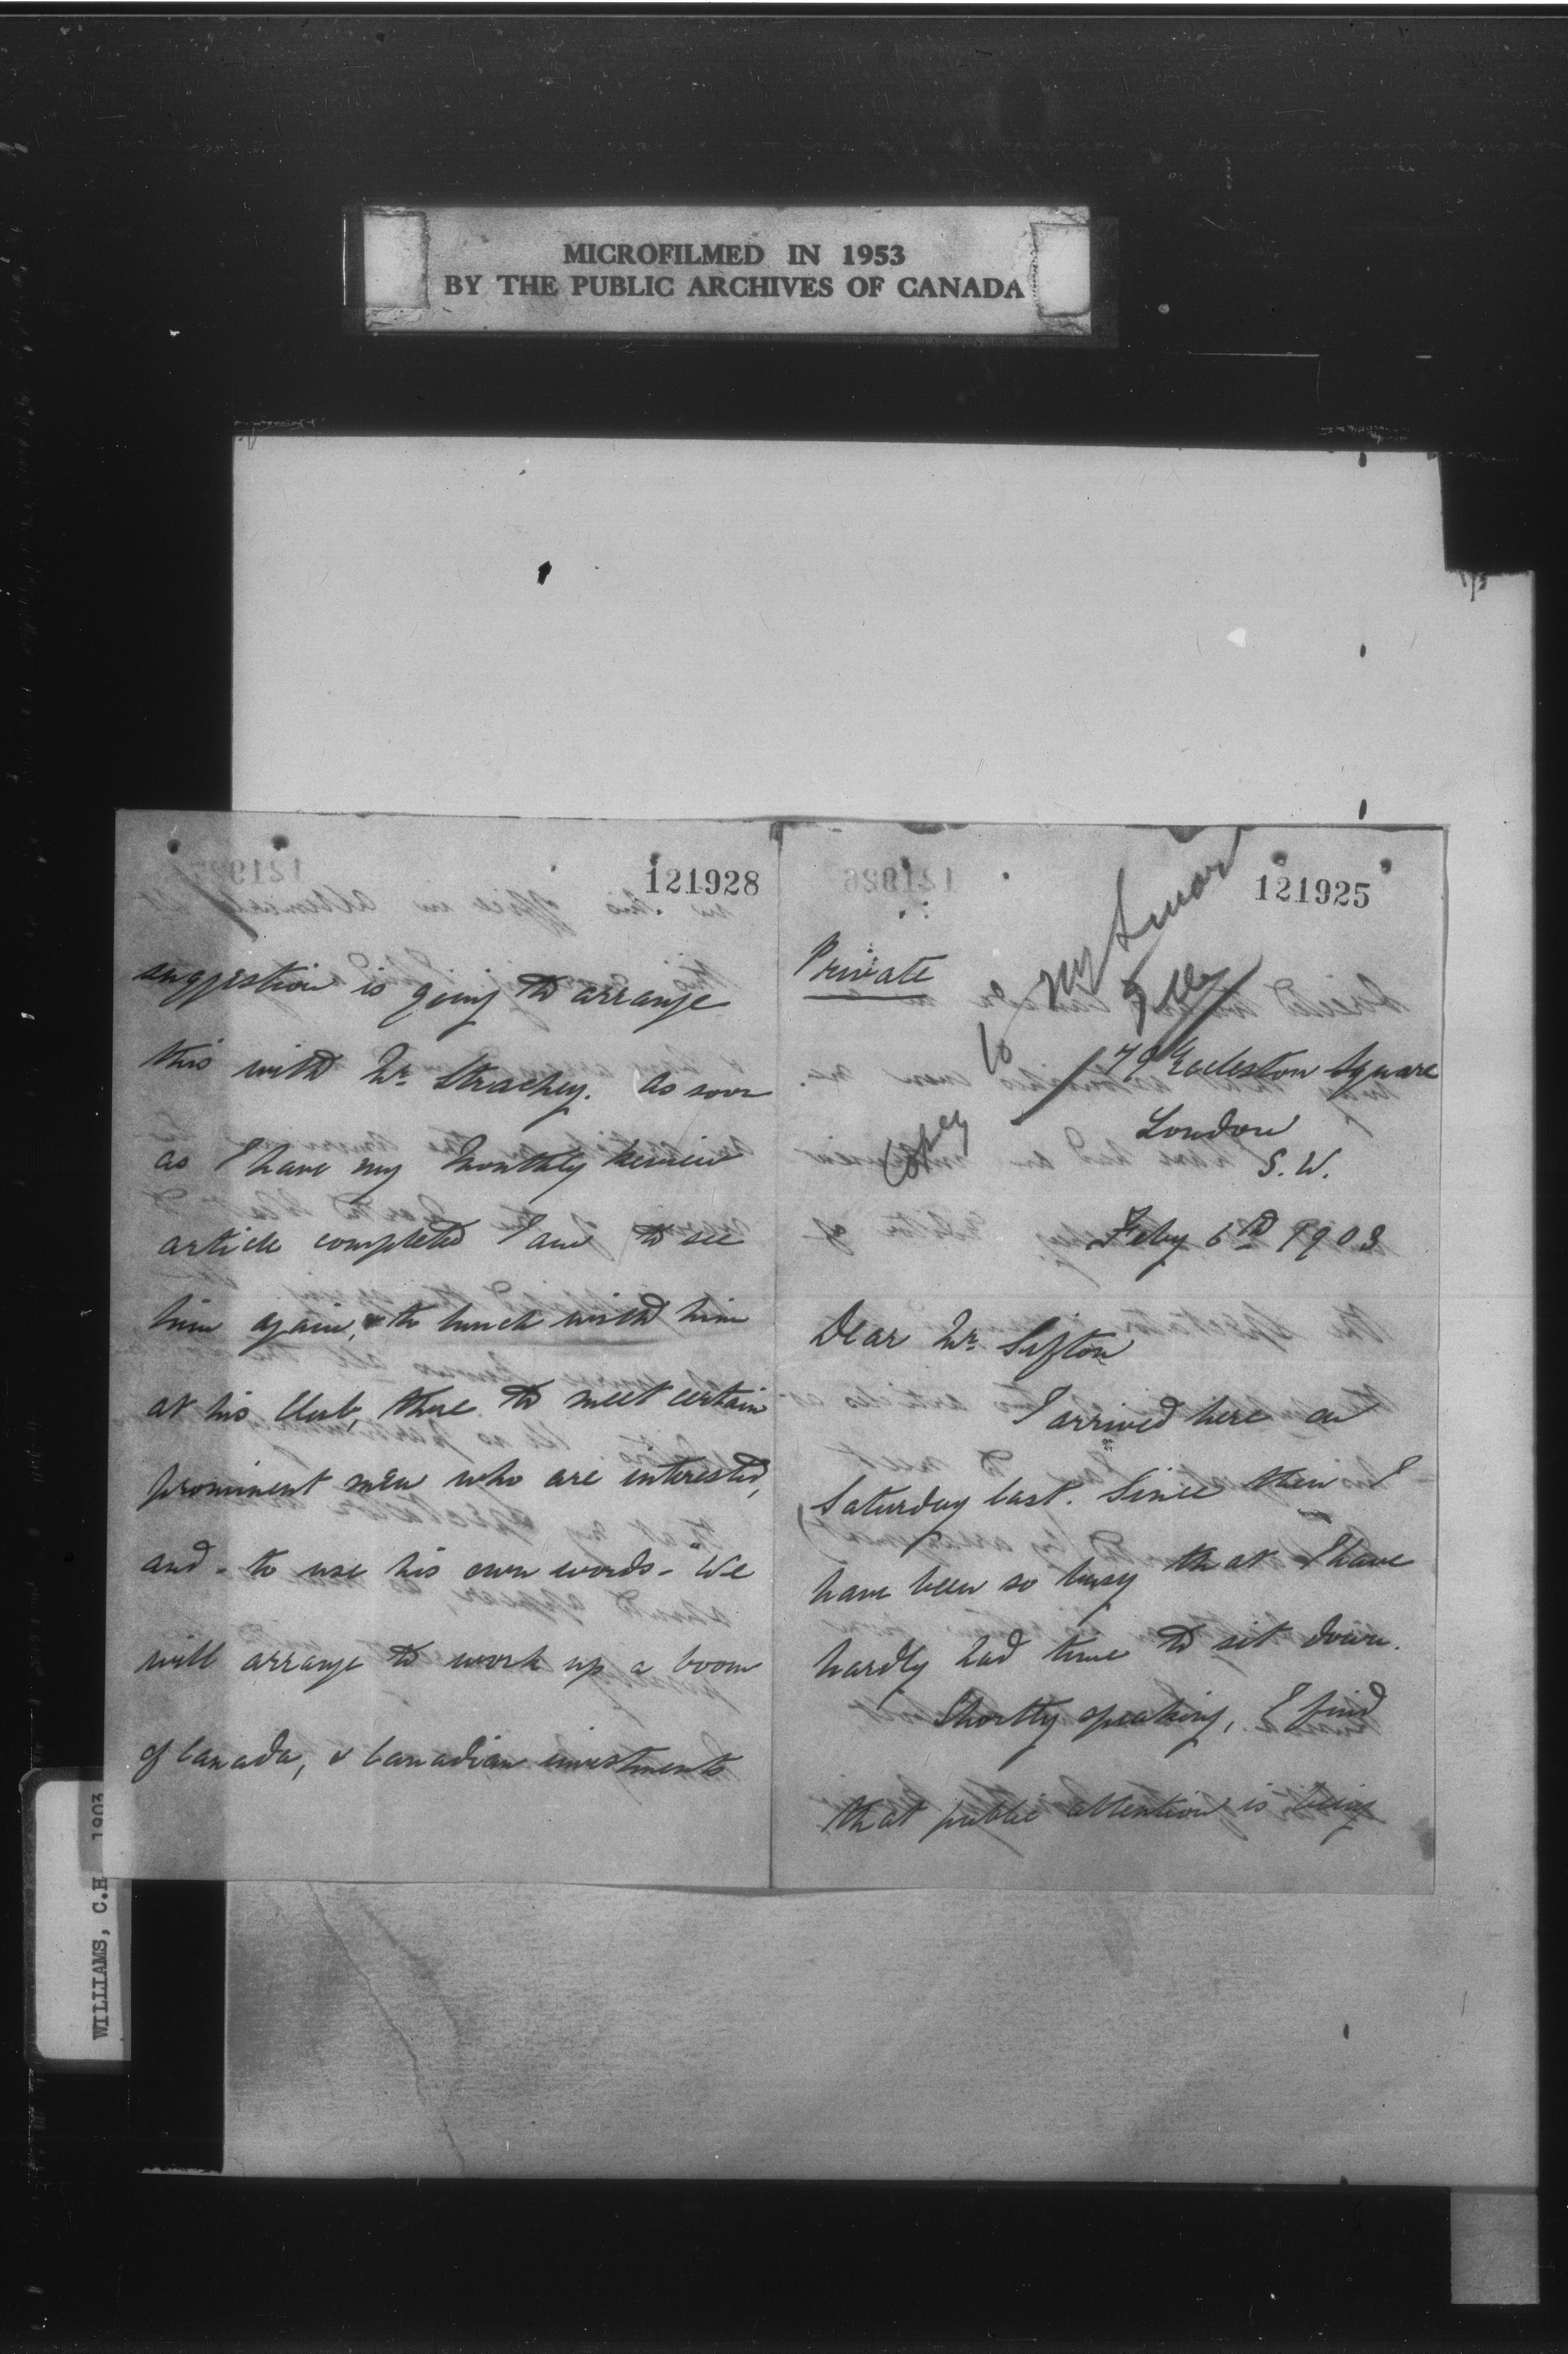 MICROFILMED IN 1953
BY THE PUBLIC ARCHIVES OF CANADA
121928
suggestion is going to arrange
this with Mr. Strachey. As soon
as I have my Monthly Review
article completed I am to see
him again, & to lunch with him
at his Club, there to meet certain
prominent men who are interested,
and - to use his own words - "We
will arrange to work up a boom
of Canada, & Canadian investments
121925
Private
Copy to Mr Smart
79 Eccleston Square
London
S.W.
Feby 6th 1903
Dear Mr. Sifton
I arrived here on
Saturday last. Since then I
have been so busy that I have
hardly had time to sit down.
Shortly speaking, I find
that public attention is being
WILLIAMS, C.H. 1903